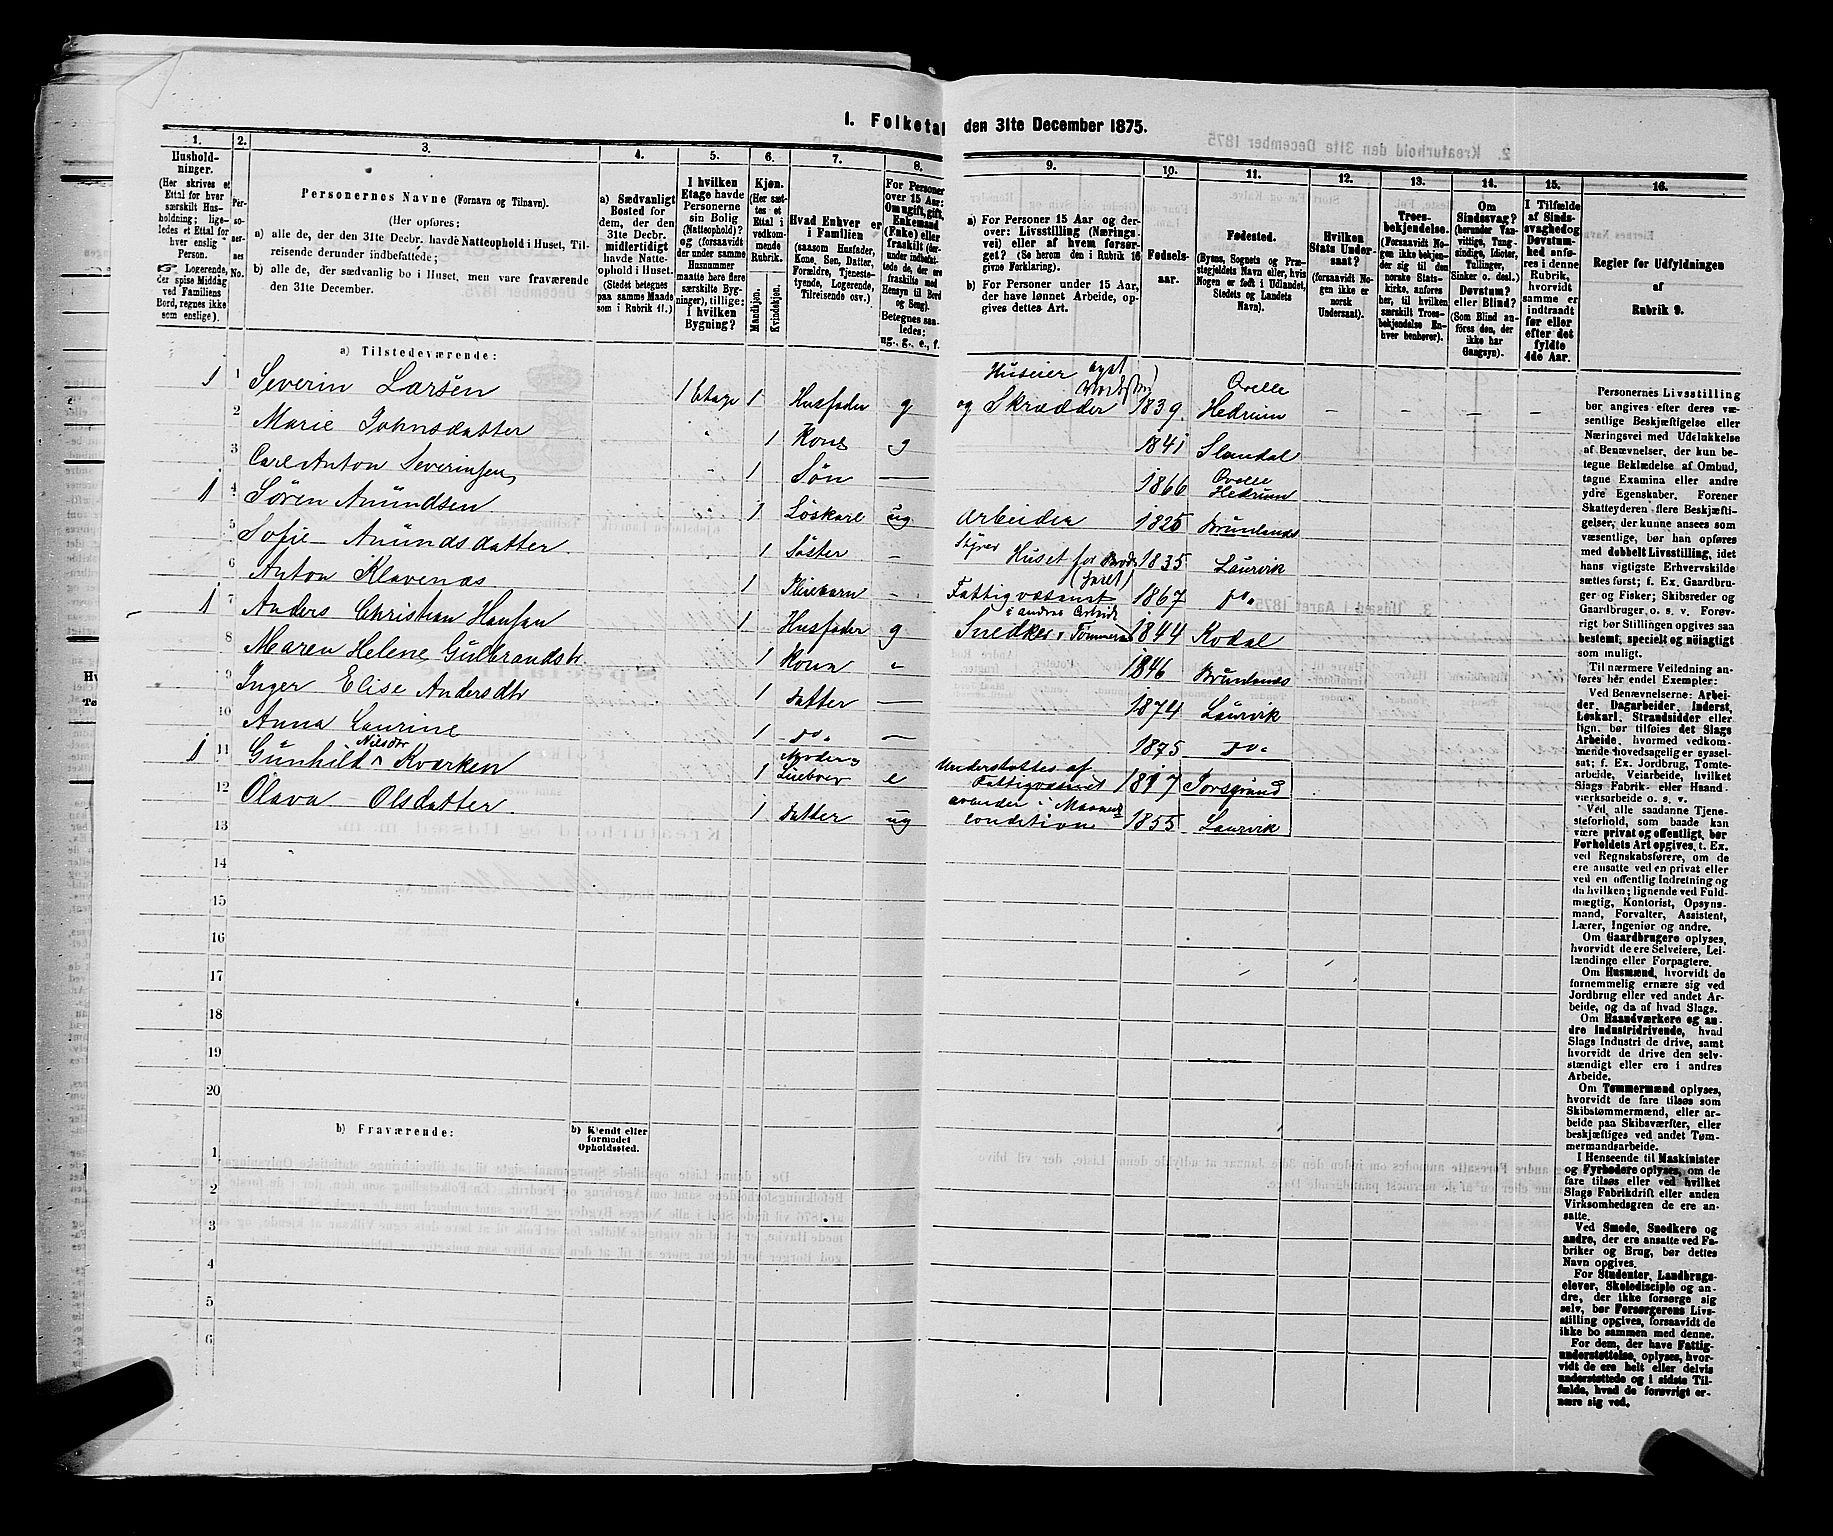 1. Folketal den 31te December 1875.
1. Husholdninger. (Her skrives et Ettal for hver særskilt Husholdning; ligeledes et Ettal for hver enslig Person. Logerende, der spise Middag ved Familiens Bord, regnes ikke som enslige).
2. Personernes No.
3. Personernes Navne (Fornavn og Tilnavn).
(Her opføres:
a) alle de, der den 31te Decbr. havde Natteophold i Huset, Tilreisende derunder indbefattede;
b) alle de, der sædvanlig bo i Huset, men vare fraværende den 31te December.
4. a) Sædvanligt Bosted for dem, der den 31te Decbr. midlertidigt havde Natteophold i Huset. (Stedet betegnes paa samme Maade som i Rubrik 11.)
5. I hvilken Etage havde Personerne sin Bolig (Natteophold)? og (forsaavidt der under samme Husnummer maatte høre flere særskilte Bygninger), tillige: I hvilken Bygning?
6. Kjøn. (Her sættes et Ettal i vedkommende Rubrik.
Mandkjøn. Kvindekjøn.
7. Hvad Enhver er i Familien (saasom Husfader, Kone, Søn, Datter, Forældre, Tjenestetyende, Logerende, Tilreisende osv.)
8. For Personer over 15 Aar: Om ugift, gift, Enkemand (Enke) eller fraskilt
Betegnes saaledes: ug., g., e., f.
9. a) For Personer 15 Aar og derover: Livsstilling (Næringsvei) eller af hvem forsørget? (Se herom den i Rubrik 16 givne Forklaring).
b) For Personer under 15 Aar, der have lønnet Arbeide, opgives dettes Art.
10. Fødselsaar.
11. Fødested. (Byens, Sognets og Præstegjeldets Navn eller, hvis Nogen er født i Udlandet, Stedets og Landets Navn).
12. Hvilken Stats Undersaat? (forsaavidt Nogen ikke er norsk Undersaat).
13. Troesbekjendelse. (Forsaavidt Nogen ikke bekjender sig til den norske Statskirke, anføres her, til hvilken særskilt Troesbekjendelse Enhver benhører).
14. Om Sindssvag? (herunder Vanvittige, Tungsindige, Idioter, Tullinger, Sinker o. desl.) Døvstum? eller Blind? (Som Blind anføres den, der ikke har Gangsyn).
15. I Tilfælde af Sindssvaghed og Døvstumhed anføres i denne Rubrik, hvorvidt samme er indtraadt før eller efter det fyldte 4de Aar.
16. Regler for Udfyldningen af Rubrik 9.
a) Tilstedeværende:
1 1 Severin Larsen 1 Etage 1 Husfader g Huseier og Skrædder 1839 Qvelle Hedrum – – – –
2 Marie Johnsdatter 1 Kone g 1841 Slemdal
3 Carl Anton Severinsen 1 Søn — 1866 Qvelle Hedrum
1 4 Søren Amundsen 1 Løskarl ug Arbeider 1825 Brunlanæs
5 Sofie Amundsdatter 1 Søster – Styrer Huset for Brode 1835 Laurvik
6 Anton Klavenæs 1 Pleiebarn – Fattigvæsenet 1867 do
1 7 Anders Christian Hansen 1 Husfader g Snedker 1844 Kodal
8 Maren Helene Gulbrandsdtr 1 Kone „ 1846 Brunlanæs
9 Inger Elise Andersdtr 1 Datter — 1874 Laurvik
10 Anna Laurine 1 do — 1875 do
1 11 Gunhild Nilsdtr Kvarken 1 e Understøttes af Fattigvæsenet 1817 Porsgrund
12 Olava Olsdatter 1 Datter ug condition 1855 Laurvik
13
14
15
16
17
18
19
20
b) Fraværende:
b) Kjendt eller formodet Opholdssted.
1
2
3
4
5
6
Personernes Livsstilling bør angives efter deres væsentlige Beskjæftigelse eller Næringsvei med Udelukkelse af Benævnelser, der kun betegne Beklædelse af Ombud, tagne Examina eller andre ydre Egenskaber. Forener Skatteyderen flere Beskjæftigelser, der kunne ansees som væsentlige, bør han opføres med dobbelt Livsstilling, idet hans vigtigste Erhvervskilde sættes først; f. Ex. Gaardbruger og Fisker; Skibsreder og Gaardbruger o. s. v. Forøvrigt bør Stillingen opgives saa bestemt, specielt og nøiagtigt som muligt.
Til nærmere Veiledning anføres her endel Exempler:
Ved Benævnelserne: Arbeider, Dagarbeider, Inderst, Løskarl, Strandsidder eller lign. bør tilføies det Slags Arbeide, hvormed vedkommende hovedsagelig er sysselsat; f. Ex. Jordbrug, Tomtearbeide, Veiarbeide, hvilket Slags Fabrik- eller Haandværksarbeide o. s. v.
Ved alle saadanne Tjenesteforhold, som baade kan være privat og offentligt, bør Forholdets Art opgives, t. Ex. ved Regnskabsførere, om de ere ansatte ved en privat eller ved en offentlig Indretning og da hvilken; lignende ved Fuldmægtig, Kontorist, Opsynsmand, Forvalter, Assistent, Lærer, Ingeniør og andre.
Om Gaardbrugere oplyses, hvorvidt de ere Selveiere, Leilændinge eller Forpagtere.
Om Husmænd, hvorvidt de fornemmelig ernære sig ved Jordbrug eller ved andet Arbeide, og da af hvad Slags.
Om Haandværkere og andre Industridrivende, hvad Slags Industri de drive, samt hvorvidt de drive den selvstændigt eller ere i andres Arbeide.
Om Tømmermænd oplyses, hvorvidt de fare tilsøs som Skibstømmermænd, eller arbeide paa Skibsværfter, eller beskjæftiges ved andet Tømmermandsarbeide.
I Henseende til Maskinister og Fyrbødere oplyses, om de fare tilsøs eller ved hvilket Slags Fabrikdrift eller anden Virksomhedsgren de ere ansatte.
Ved Smede, Snedkere og andre, der ere ansatte ved Fabriker og Brug, bør dettes Navn opgives.
For Studenter, Landbrugselever, Skoledisciple og andre, der ikke forsørge sig selv, bør Forsørgerens Livsstilling opgives, forsaavidt de ikke bo sammen med denne.
For dem, der have Fattigunderstøttelse, oplyses, hvorvidt de ere helt eller delvis understøttede og i sidste Tilfælde, hvad de forøvrigt ernære sig ved.